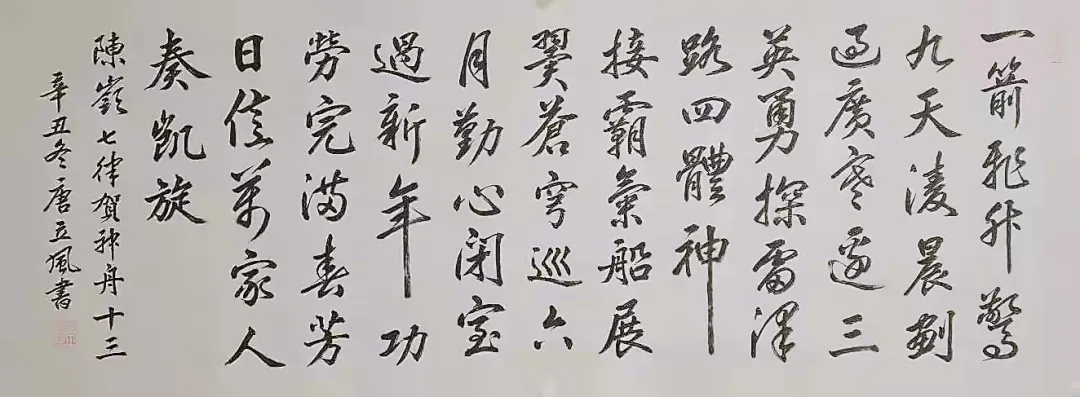 一箭飛升驚
九天淩晨劃
過廣寒邊三
英勇探雷澤
路四體神
接霸氣船展
翼蒼穹巡六
月勤心闲室
過新年功
勞完滿春芳
日信萬家人
奏凱旋
陳嶺七律賀神舟十三
辛丑冬唐立風書